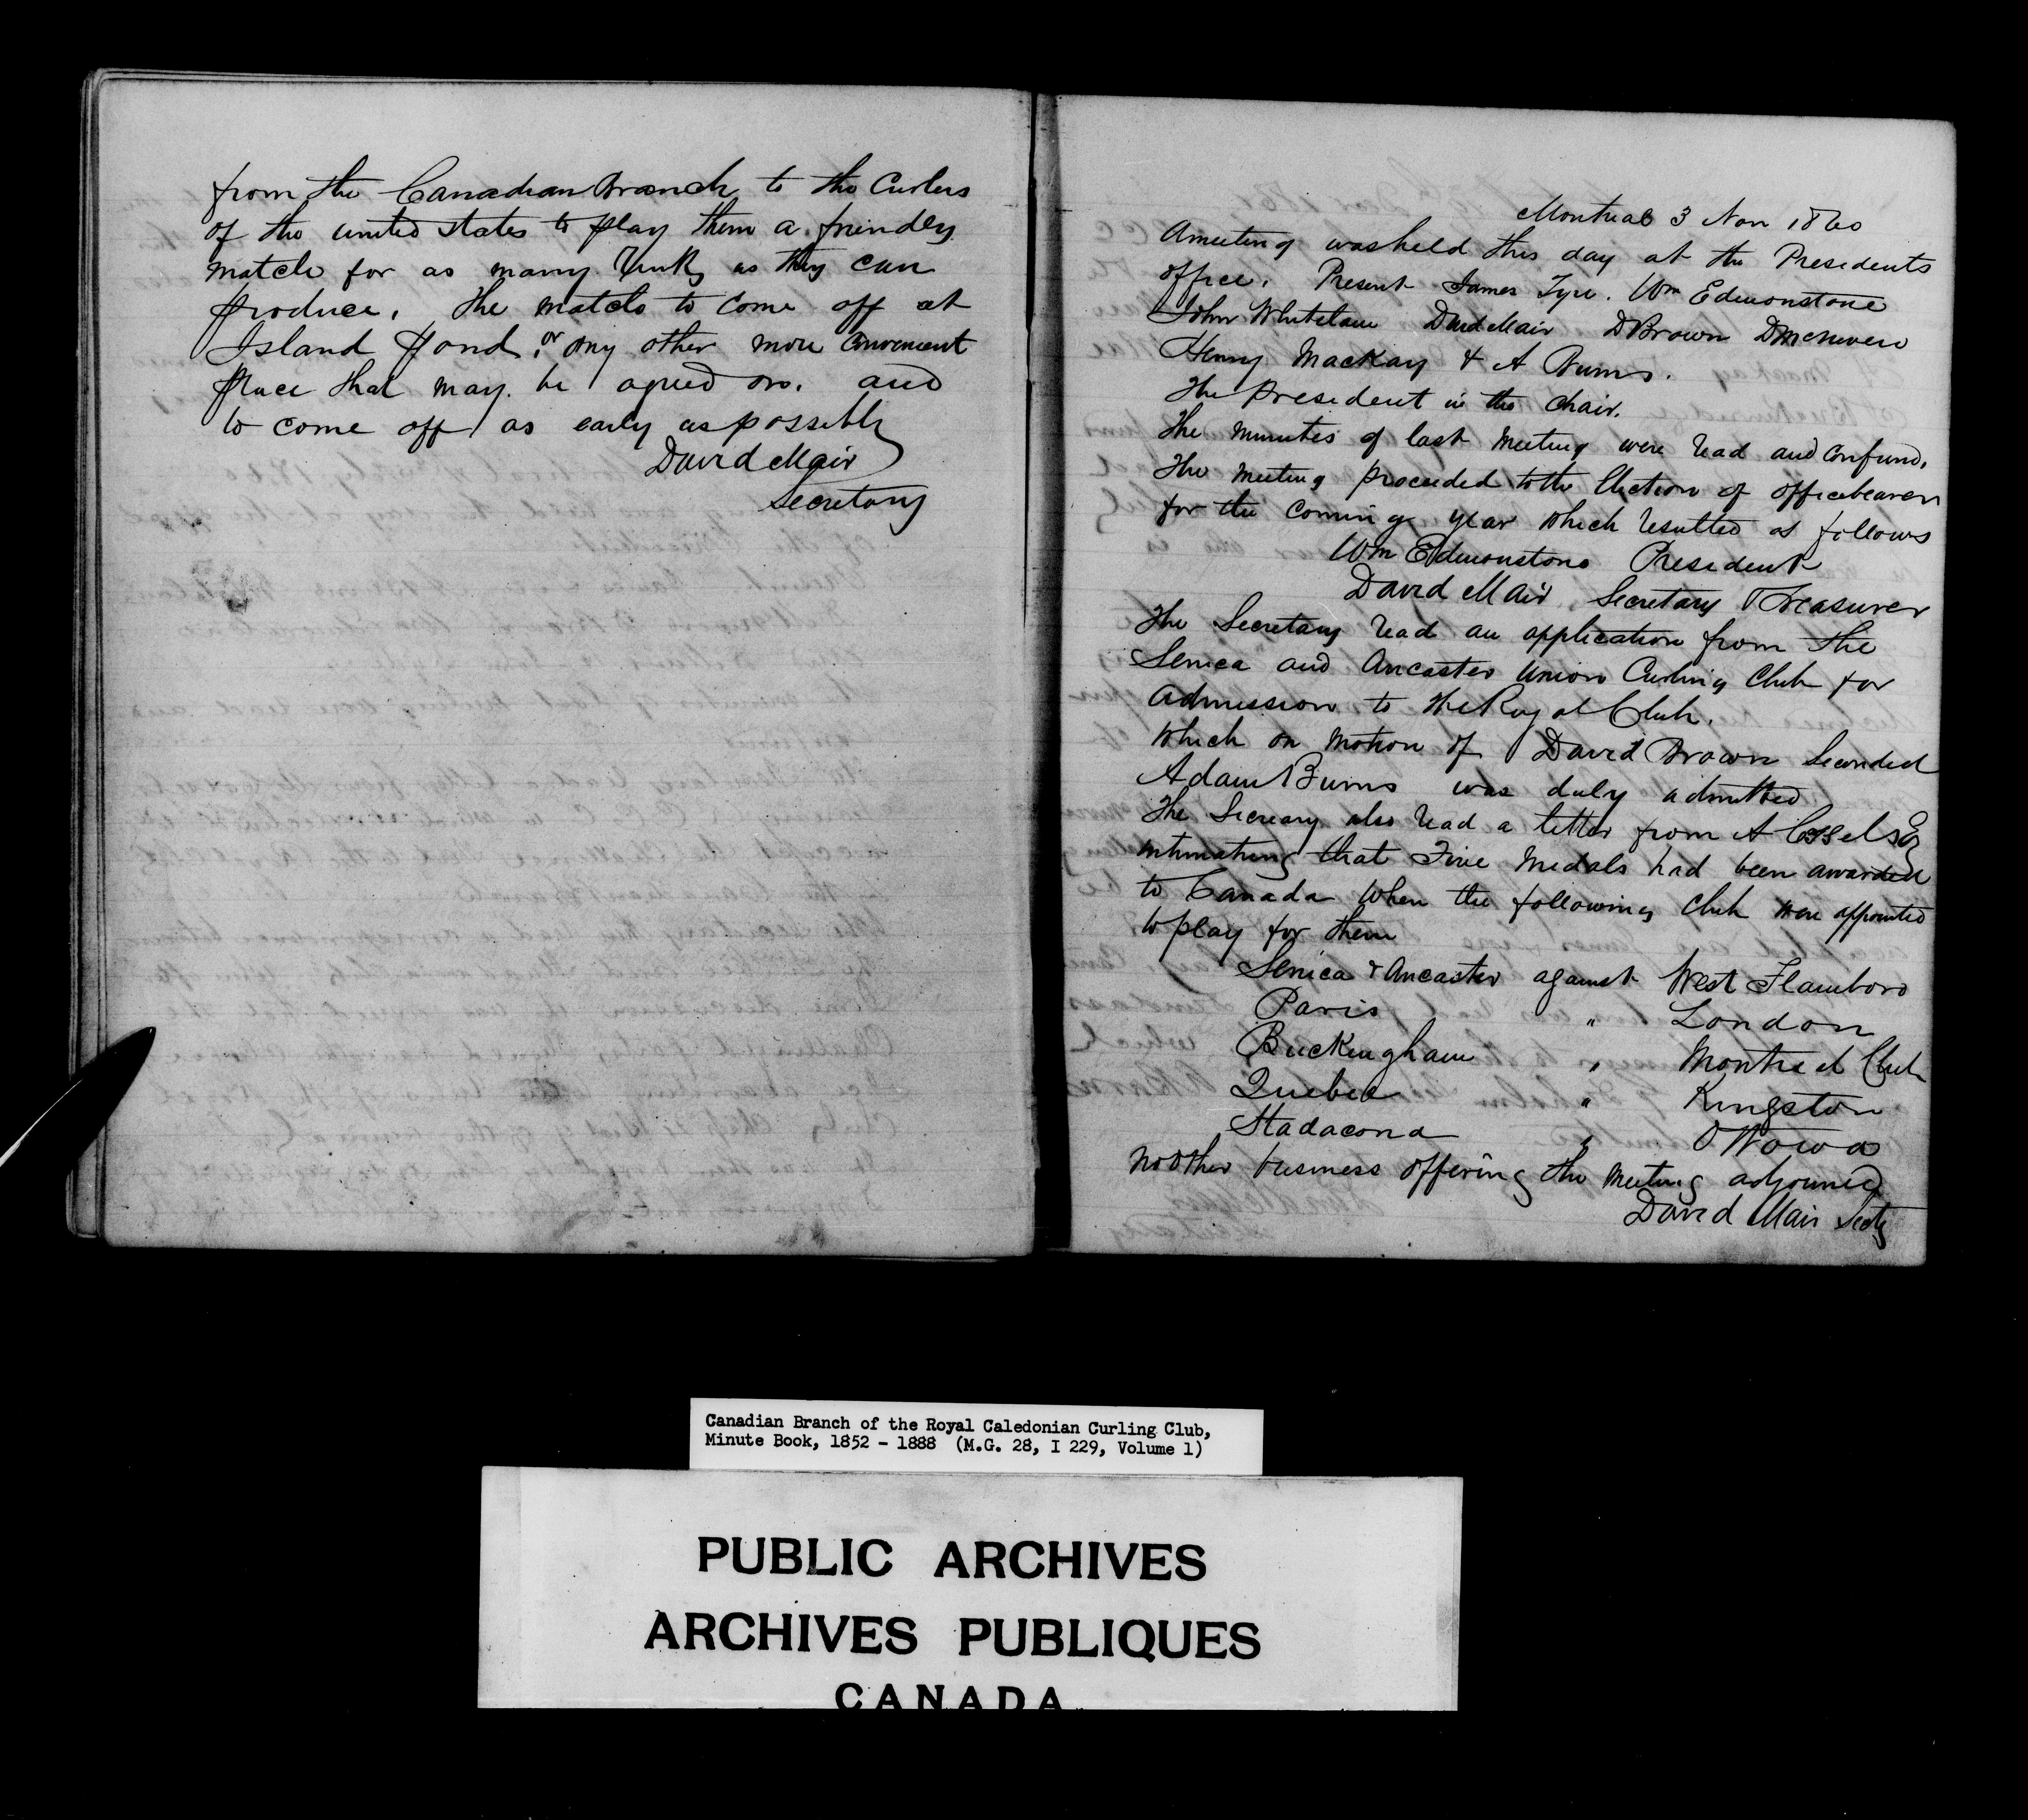 from the Canadian Branch to the Curlers
of the united states to play them a friendly
match for as many Rinks as they can
produce. The match to come off at
Island Pond. or any other more convenient
place that may be agreed on. and
to come off as early as possible
David Mair
Secretary
Montreal 3 Nov 1860
A meeting was held this day at the Presidents
office. Present James Tyre. Wm Edmonstone
John Whitelaw David Mair D Brown
Henry MacKay & A Burns.
The President in the chair.
The minutes of last meeting were read and confirmd.
The meeting proceeded to the Election of officebearers
for the coming year which resulted as follows
Wm Edmonstone President
David Mair Secretary Treasurer
The Secretary read an application from The
Seneca and Ancaster Union Curling Club for
admission to The Royal Club.
which on motion of David Brown Seconded
Adam Burns was duly admitted
The Secreary also read a letter from A Cassels Esq
intimating that Five Medals had been awarded
to Canada When the following Club were appointed
to play for them
Senica & Ancaster against West Flamboro
Paris " London
Buckingham " Montreal Club
Quebec " Kingston
Stadacona " Ottowa
no other business offering the meeting adjourned
David Mair Secty
Canadian Branch of the Royal Caledonian Curling Club,
Minute Book, 1852 - 1888 (M.G. 28, I 229, Volume 1)
PUBLIC ARCHIVES
ARCHIVES PUBLIQUES
CANADA